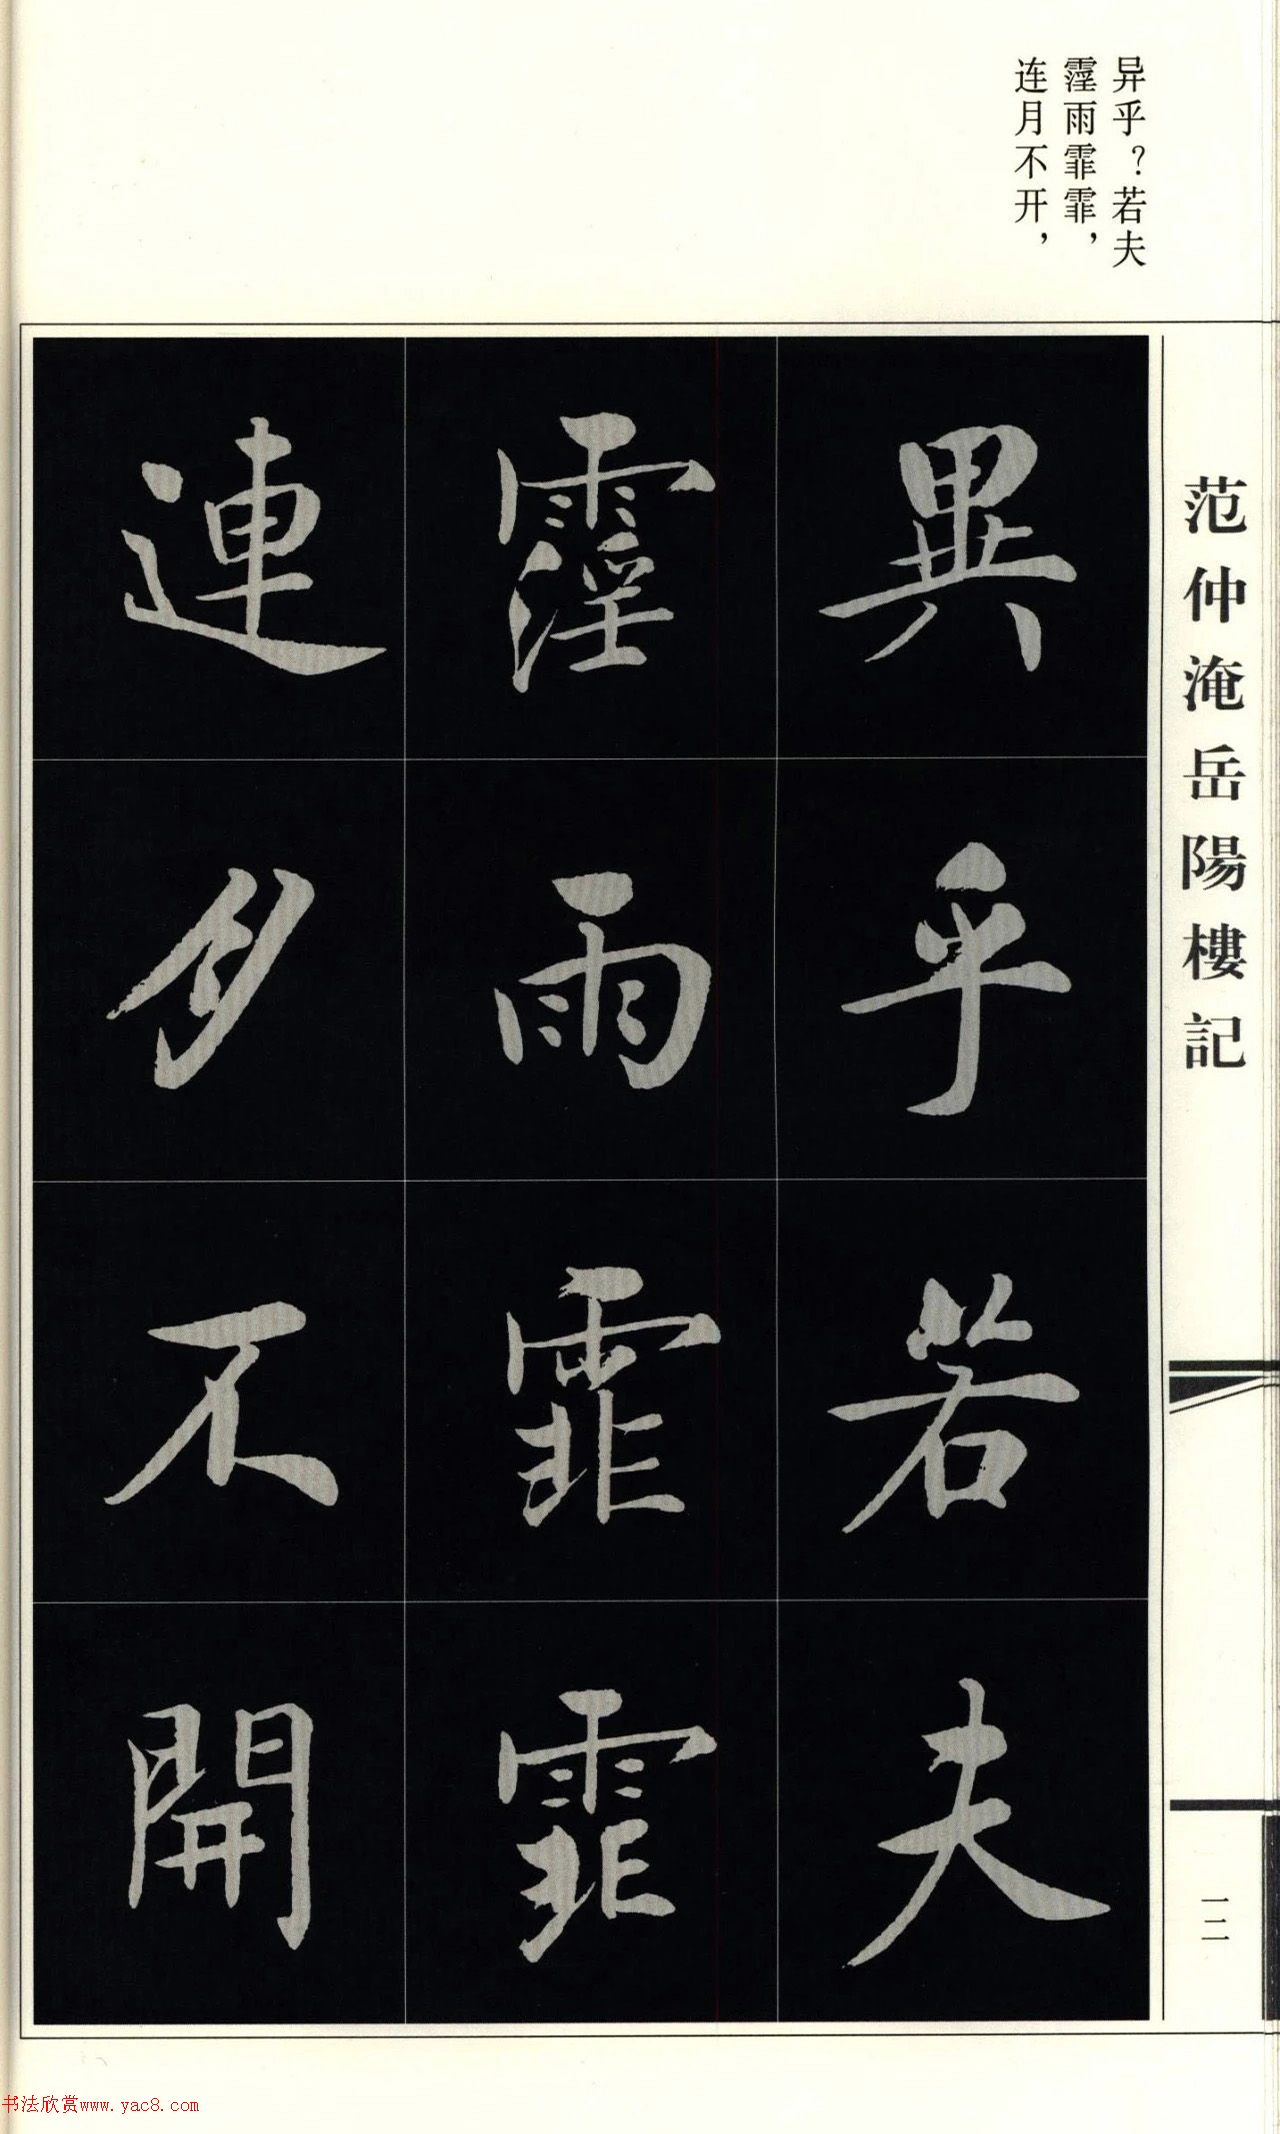 异乎？若夫
霪雨霏霏，
连月不开，
范仲淹岳陽樓記
異乎若夫
霪雨霏霏
連月不開
一二
书法欣赏www.yac8.com